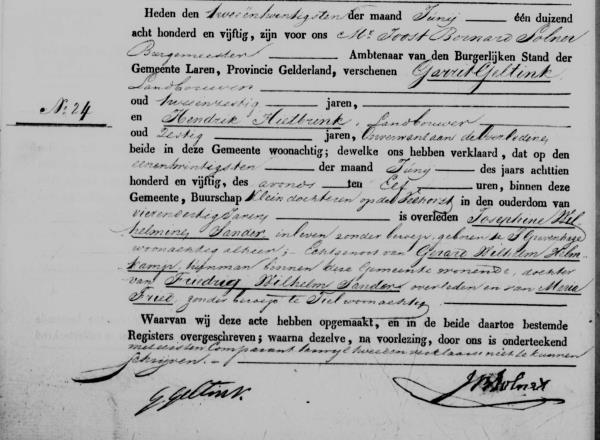 Heden den tweeentwintigsten der maand Junij één duizend
acht honderd en vijftig, zijn voor ons Mr Joost Bernard Solner
Burgemeester Ambtenaar van den Burgerlijken Stand der
Gemeente Laren, Provincie Gelderland, verschenen Garrit Geltink
Landbouwer
oud tweeenzestig jaren,
No. 24
en Hendrik Landbouwer
oud Zestig jaren, Onverwant aan de overledene
beide in deze Gemeente woonachtig; dewelke ons hebben verklaard, dat op den
eenentwintigsten der maand Junij des jaars achttien
honderd en vijftig, des avonds ten Elf uren, binnen deze
Gemeente, Buurschap Klein dochteren op de in den ouderdom van
vierenzestig Jaren is overleden Josephine Wil
helmine Sander in leven zonder beroep, geboren te S Gravenhage
woonachtig alhier; Echtgenoot van Gerard Wilhelm Helm
kamp, binnen deze Gemeente wonende, dochter
van Fredrig Wilhelm Sander overleden en van Maria
zonder beroep te Tiel woonachtig
Waarvan wij deze acte hebben opgemaakt, en in de beide daartoe bestemde
Registers overgeschreven; waarna dezelve, na voorlezing, door ons is onderteekend
met eersten Comparant terwijl tweeden verklaarde niet te kunnen
schrijven.
G. Geltink. JBSolner